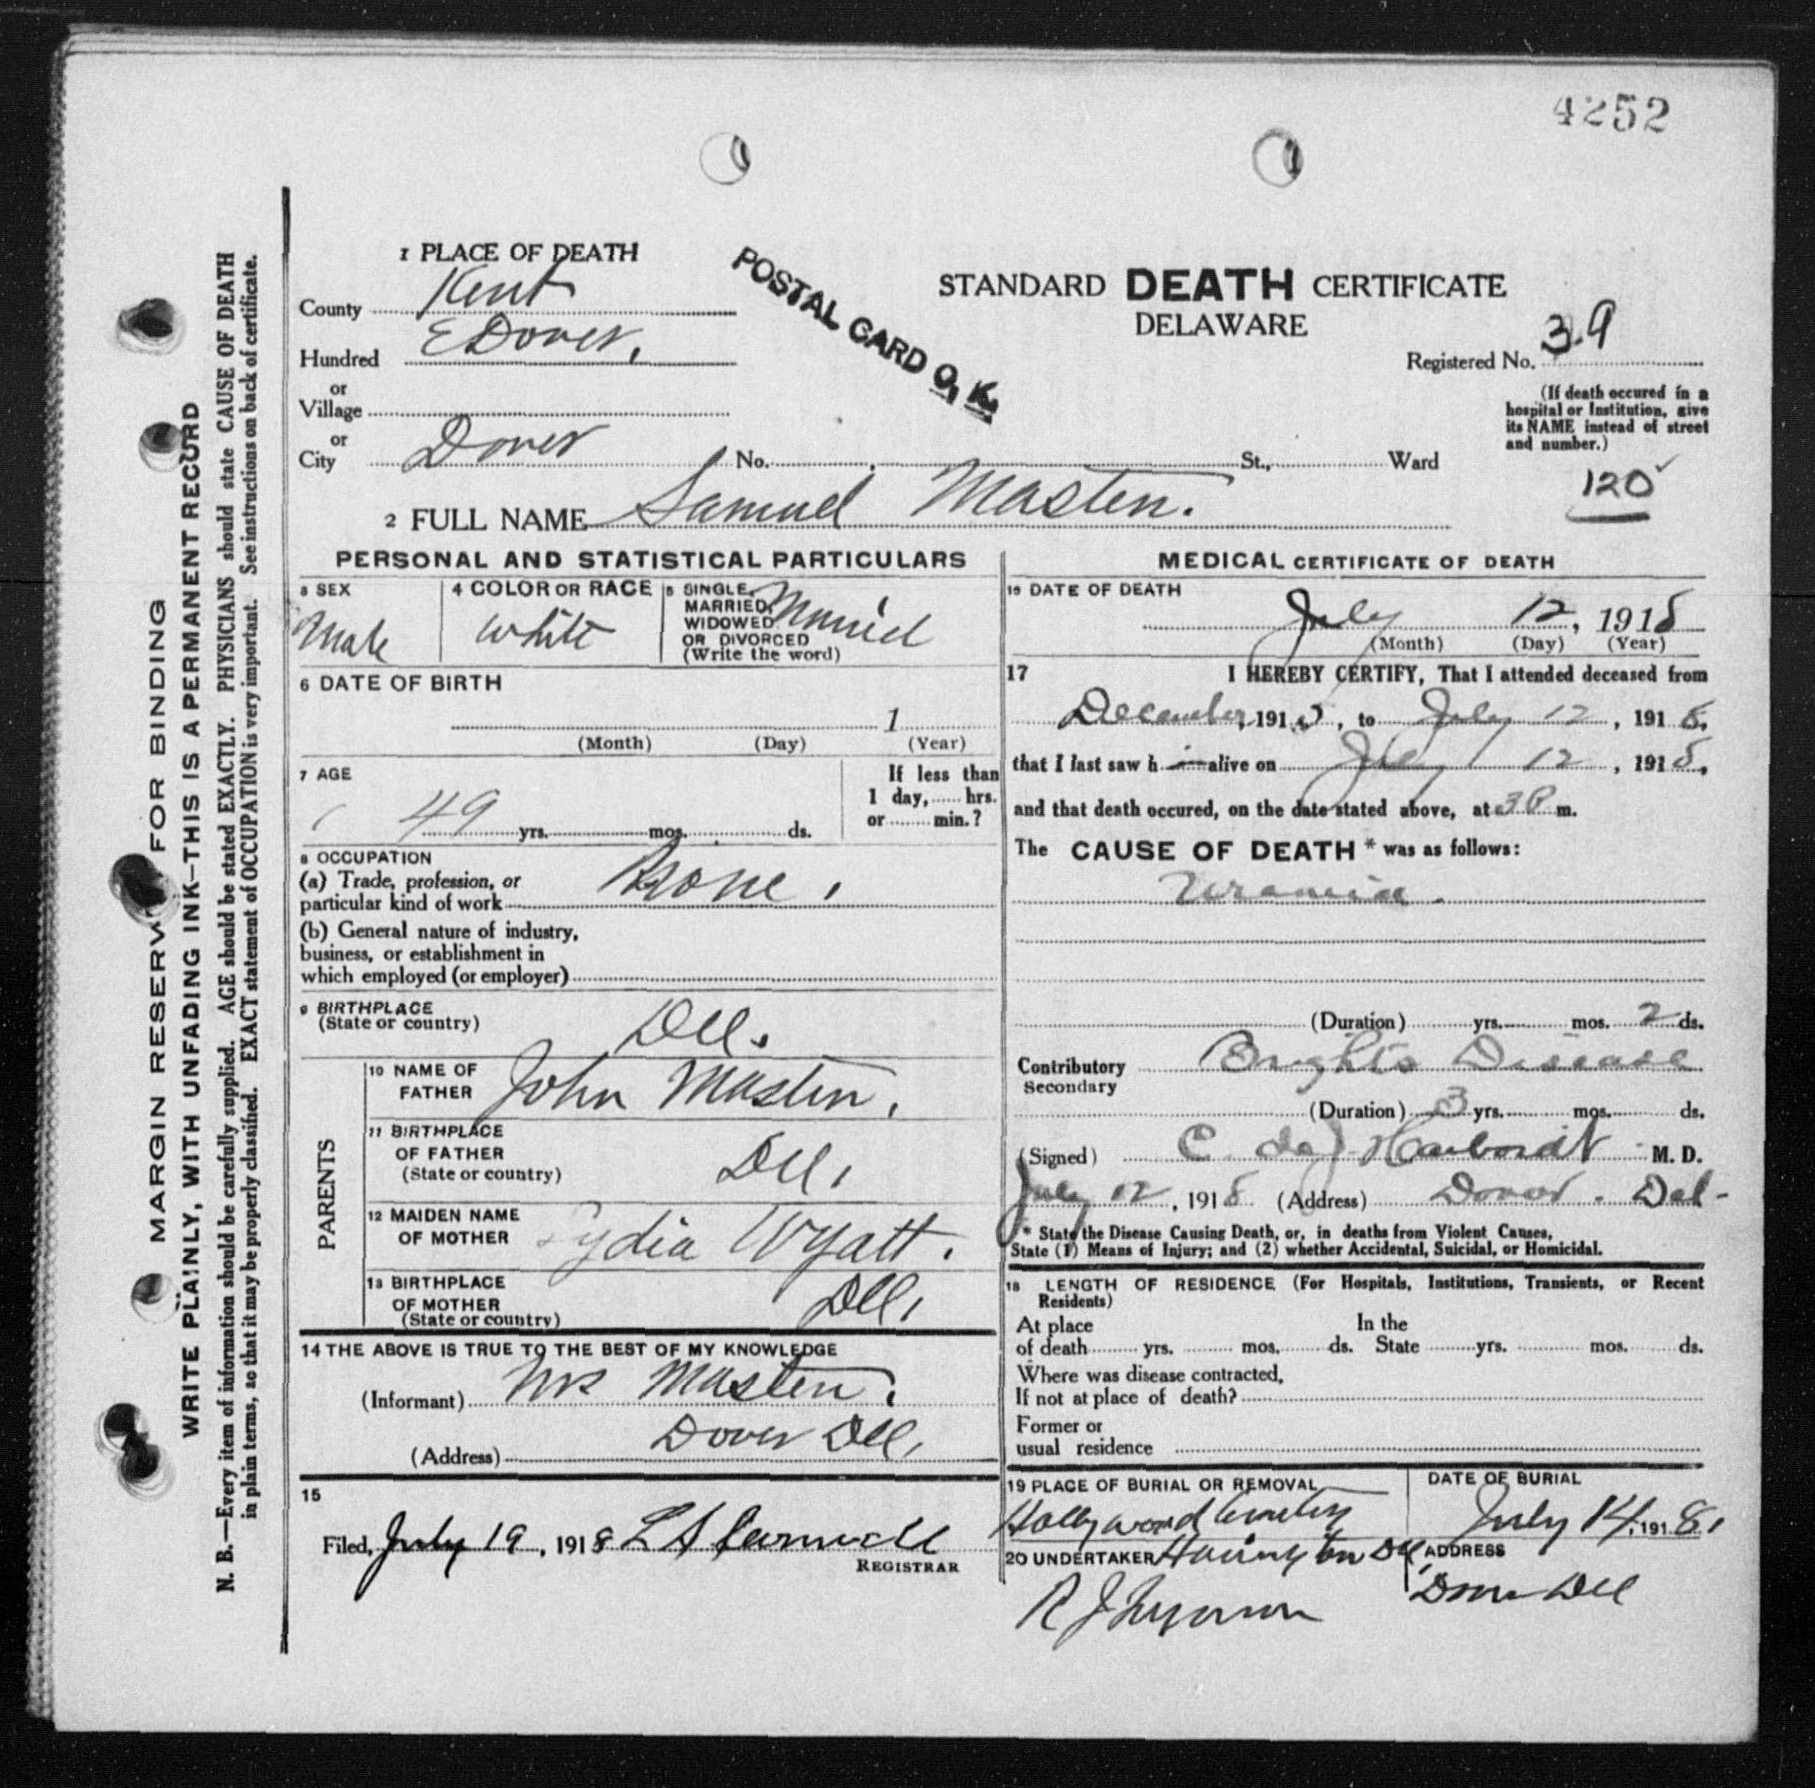 4252
1 PLACE OF DEATH
County Kent
Hundred E Dover,
or
Village
or
City Dover No. St., Ward
POSTAL CARD O. K.
STANDARD DEATH CERTIFICATE
DELAWARE
Registered No. 39
(If death occured in a
hospital or Institution, give
its NAME instead of street
and number.)
120
2 FULL NAME Samuel Masten.
PERSONAL AND STATISTICAL PARTICULARS
3 SEX
Male
4 COLOR OR RACE
White
5 SINGLE,
MARRIED,
WIDOWED
OR DIVORCED
(Write the word)
Married
6 DATE OF BIRTH
1
(Month) (Day) (Year)
7 AGE
49 yrs. mos. ds.
If less than
1 day, hrs.
or min.?
8 OCCUPATION
(a) Trade, profession, or
particular kind of work None.
(b) General nature of industry,
business, or establishment in
which employed (or employer)
9 BIRTHPLACE
(State or country) Del.
PARENTS
10 NAME OF
FATHER John Masten.
11 BIRTHPLACE
OF FATHER
(State or country) Del.
12 MAIDEN NAME
OF MOTHER Lydia Wyatt.
13 BIRTHPLACE
OF MOTHER
(State or country) Del.
14 THE ABOVE IS TRUE TO THE BEST OF MY KNOWLEDGE
(Informant) Mrs Masten.
(Address) Dover Del,
15
Filed, July 19, 1918 L A
REGISTRAR
MEDICAL CERTIFICATE OF DEATH
16 DATE OF DEATH
July 12, 1918
(Month) (Day) (Year)
17 I HEREBY CERTIFY, That I attended deceased from
December, 191 , to July 12, 1918,
that I last saw h im alive on July 12, 1918,
and that death occured, on the date stated above, at 3 P m.
The CAUSE OF DEATH * was as follows:
Uraemia.
(Duration) yrs. mos. 2 ds.
Contributory Brights Disease
Secondary
(Duration) 3 yrs. mos. ds.
(Signed) C. de J. M. D.
July 12, 1918 (Address) Dover. Del-
* State the Disease Causing Death, or, in deaths from Violent Causes,
State (1) Means of Injury; and (2) whether Accidental, Suicidal, or Homicidal.
18 LENGTH OF RESIDENCE (For Hospitals, Institutions, Transients, or Recent
Residents)
At place In the
of death yrs. mos. ds. State yrs. mos. ds.
Where was disease contracted,
If not at place of death?
Former or
usual residence
19 PLACE OF BURIAL OR REMOVAL
Hollywood Cemetery
Harrington Del,
DATE OF BURIAL
July 14, 1918,
20 UNDERTAKER
R J
ADDRESS
Dover Del
MARGIN RESERV FOR BINDING
WRITE PLAINLY, WITH UNFADING INK—THIS IS A PERMANENT RECORD
N. B.—Every item of information should be carefully supplied. AGE should be stated EXACTLY. PHYSICIANS should state CAUSE OF DEATH
in plain terms, so that it may be properly classified. EXACT statement of OCCUPATION is very important. See instructions on back of certificate.